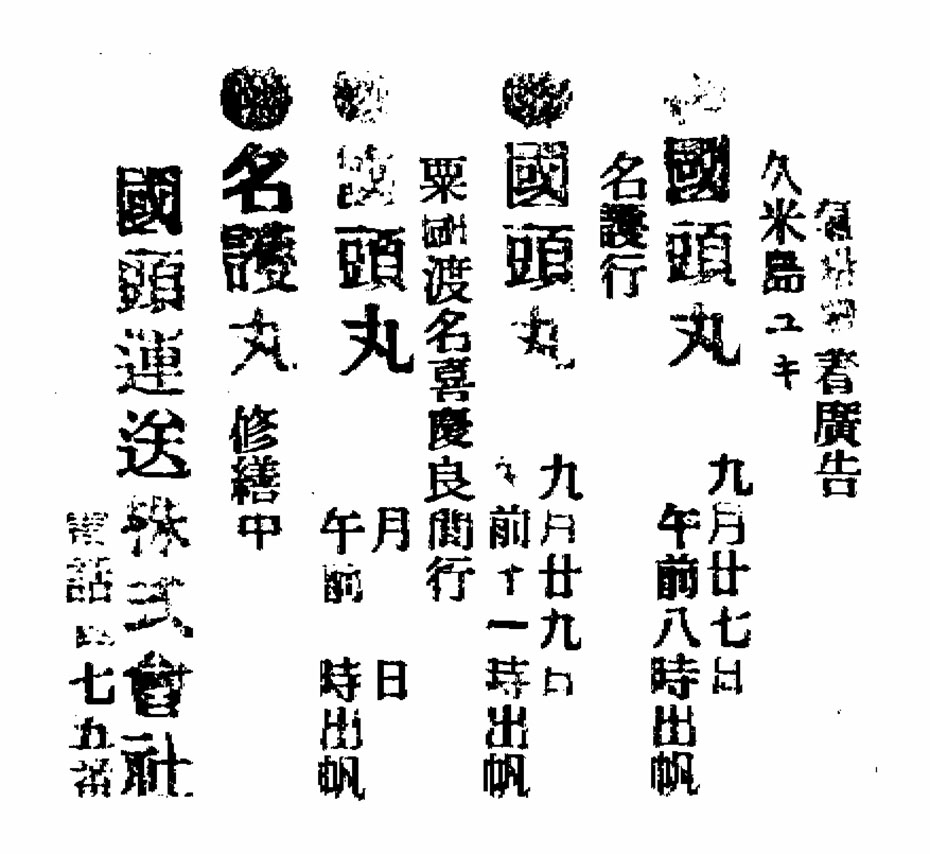 者廣告
久米島ユキ
國頭丸
九月廿七日
午前八時出帆
名護行
國頭丸
九月廿九日
午前十一時出帆
粟國渡名喜慶良間行
國頭丸
月　日
午前　時出帆
名護丸　修繕中
國頭運送株式會社
電話 七五番